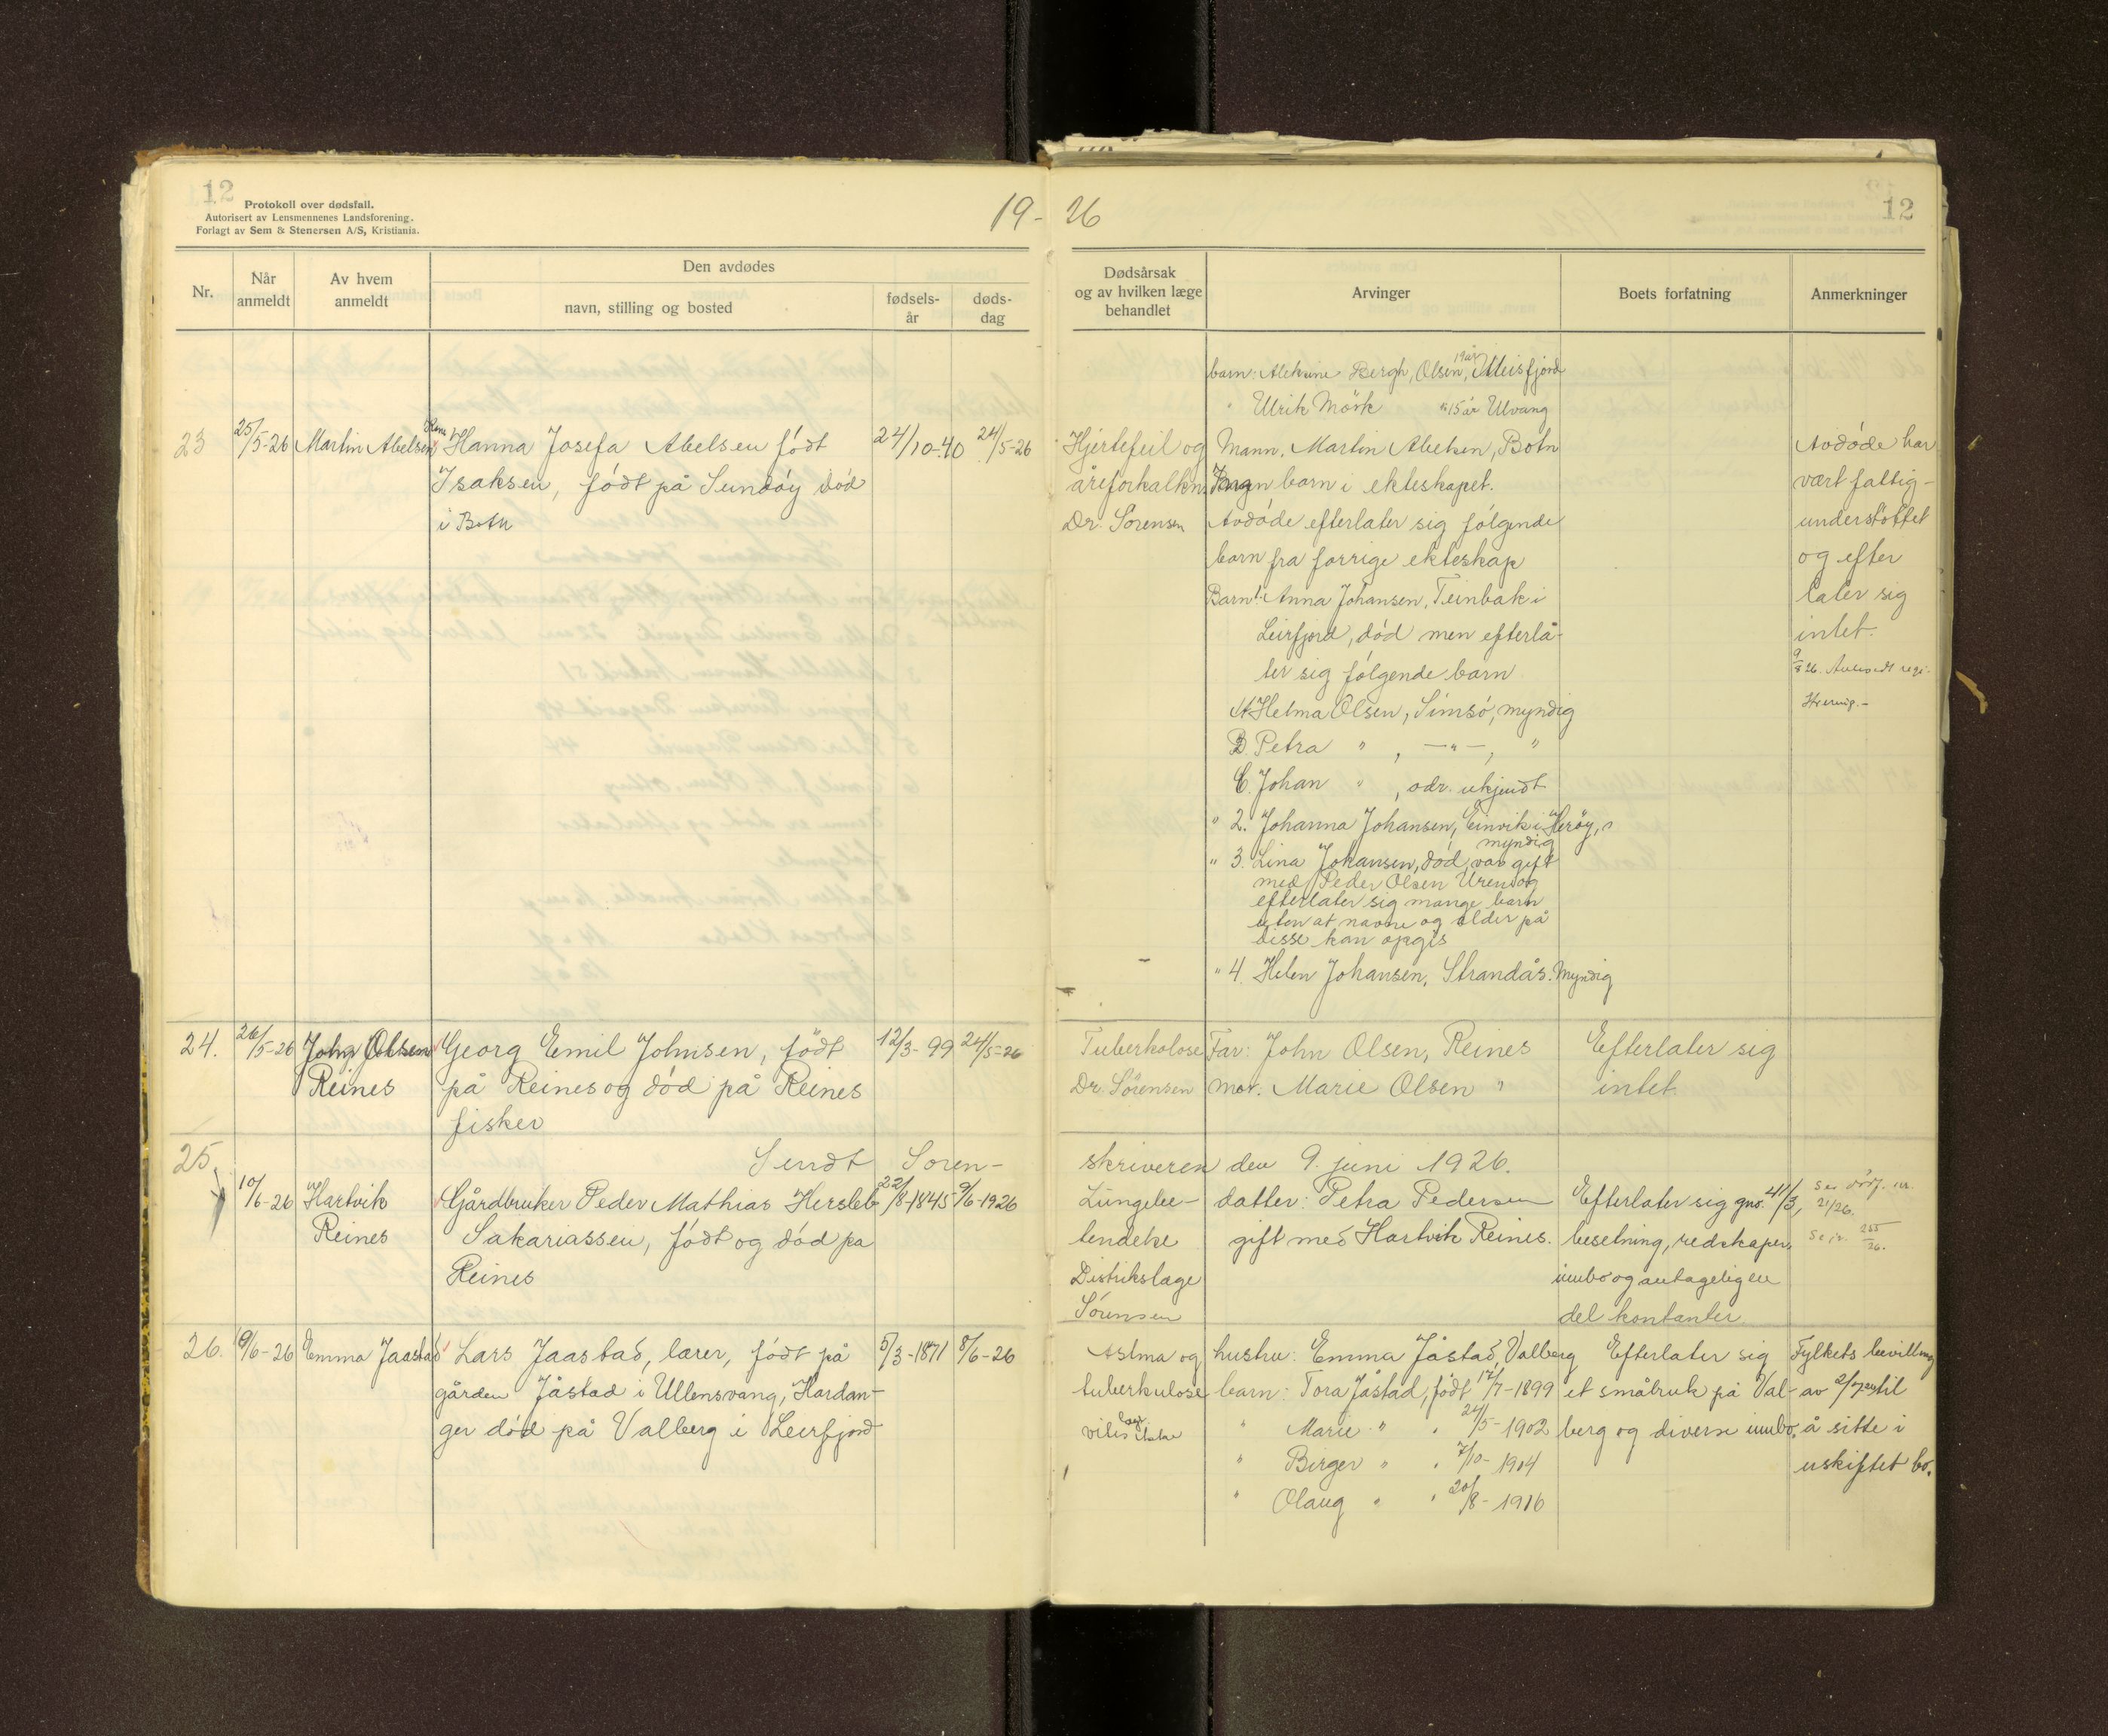 12
Protokoll over dødsfall.
Autorisert av Lensmennenes Landsforening.
Forlagt av Sem & Stenersen A/S, Kristiania.
19-
Nr.
Når anmeldt
Av hvem anmeldt
Den avdødes
navn, stilling og bosted
fødsels-år
døds-dag
23 25/5-26 Martin Abelsen Hanna Josefa Abelsen født 24/10-40 24/5-26
Isaksen, født på Sundøy død
i Botn
24. 26/5-26 John Olsen Georg Emil Johnsen, født 12/3-99 24/5-26
Reines på Reines og død på Reines
fisker
25. Sendt Soren-
10/6-26 Hartvik Gårdbruker Peder Mathias Hersleb 22/8-1845 9/6-1926
Reines Sakariassen, født og død på
Reines
26. 9/6-26 Emma Jaastad Lars Jaastad, lærer, født på 5/3-1871 8/6-26
gården Jåstad i Ullensvang, Hardan-
ger død på Valberg i Leirfjord
26
12
Dødsårsak og av hvilken læge behandlet
Arvinger
Boets forfatning
Anmerkninger
19 år
barn: Bergh, Olsen, Meisfjord
" Ulrik Mörk " 15 år Ulvang
Hjertefeil og Mann. Martin Abelsen, Botn Avdøde har
åreforkalkn. Ingen barn i ekteskapet. vært fattig-
Dr. Sørensen Avdøde efterlater sig følgende understøttet
barn fra forrige ekteskap og efter
Barn 1. Anna Johansen, Teinbak i later sig
Leirfjord, død men efterlå- intet.
ter sig følgende barn 26.
A Helma Olsen, Simsø, myndig
B Petra " , -"-, "
C. Johan " , adr. ukjendt
" 2. Johanna Johansen, Einvik i Herøy,
myndig
" 3. Lina Johansen, død, var gift
med Peder Olsen Urend og
efterlater sig mange barn
uten at navne og alder på
disse kan opgis
" 4. Helen Johansen, Strandås. Myndig
Tuberkolose Far: John Olsen, Reines Efterlater sig
Dr. Sörensen mor. Marie Olsen " intet
skriveren den 9. juni 1926.
Lungebe- datter: Petra Pedersen Efterlater sig gno. 41/3, 21/26.
tendelse gift med Hartvik Reines. besetning, redskaper, 26.
Distrikslæge innbo og antageligen
Sörensen del kontanter.
Astma og hustru: Emma Jåstad, Valberg Efterlater sig Fylkets bevilling
tuberkulose barn: Tora Jåstad, født 12/7-1899 et småbruk på Val- av 2/7 til
læge " Marie " " 24/5-1902 berg og diverse innbo. å sitte i
" Birger " " 7/10-1904 uskiftet bo.
" Olaug " " 20/8-1916